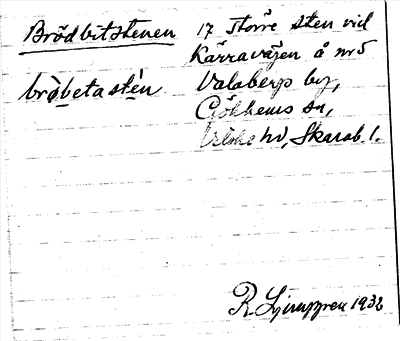 Brödbitstenen 17 större sten vid
Kärravägen å nr 5
brö̀betastén Valabergs by,
Gökhems sn,
Vilske hd, Skarab. l.
R. Ljunggren 1932